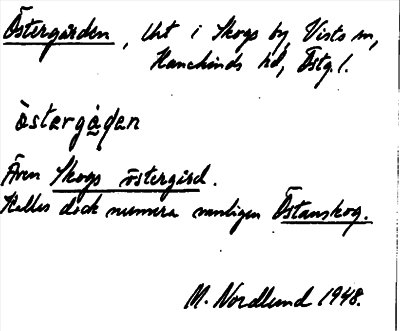 Östergården, Uht i Skogs by, Vists sn,
Hanekinds hd, Östg. l.
östərgå̱ḍən
Även Skogs östergård.
Kallas dock numera vanligen Östanskog.
M. Nordlund 1948.